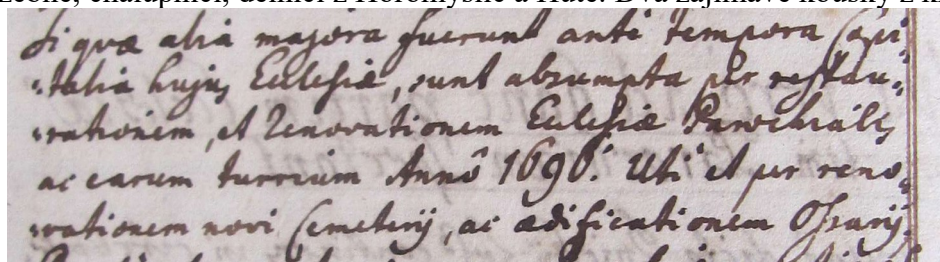 Si quæ alia majora fuerunt ante tempora Capi-
-talia hujus Eclesiæ, sunt absumpta per restau-
-rationem, et renovationem Eclesiæ Parochialis
ac earum turrium Annô 1696. Uti et per reno-
-vationem novi Cemeterij, ac ædificationem Ossarij.